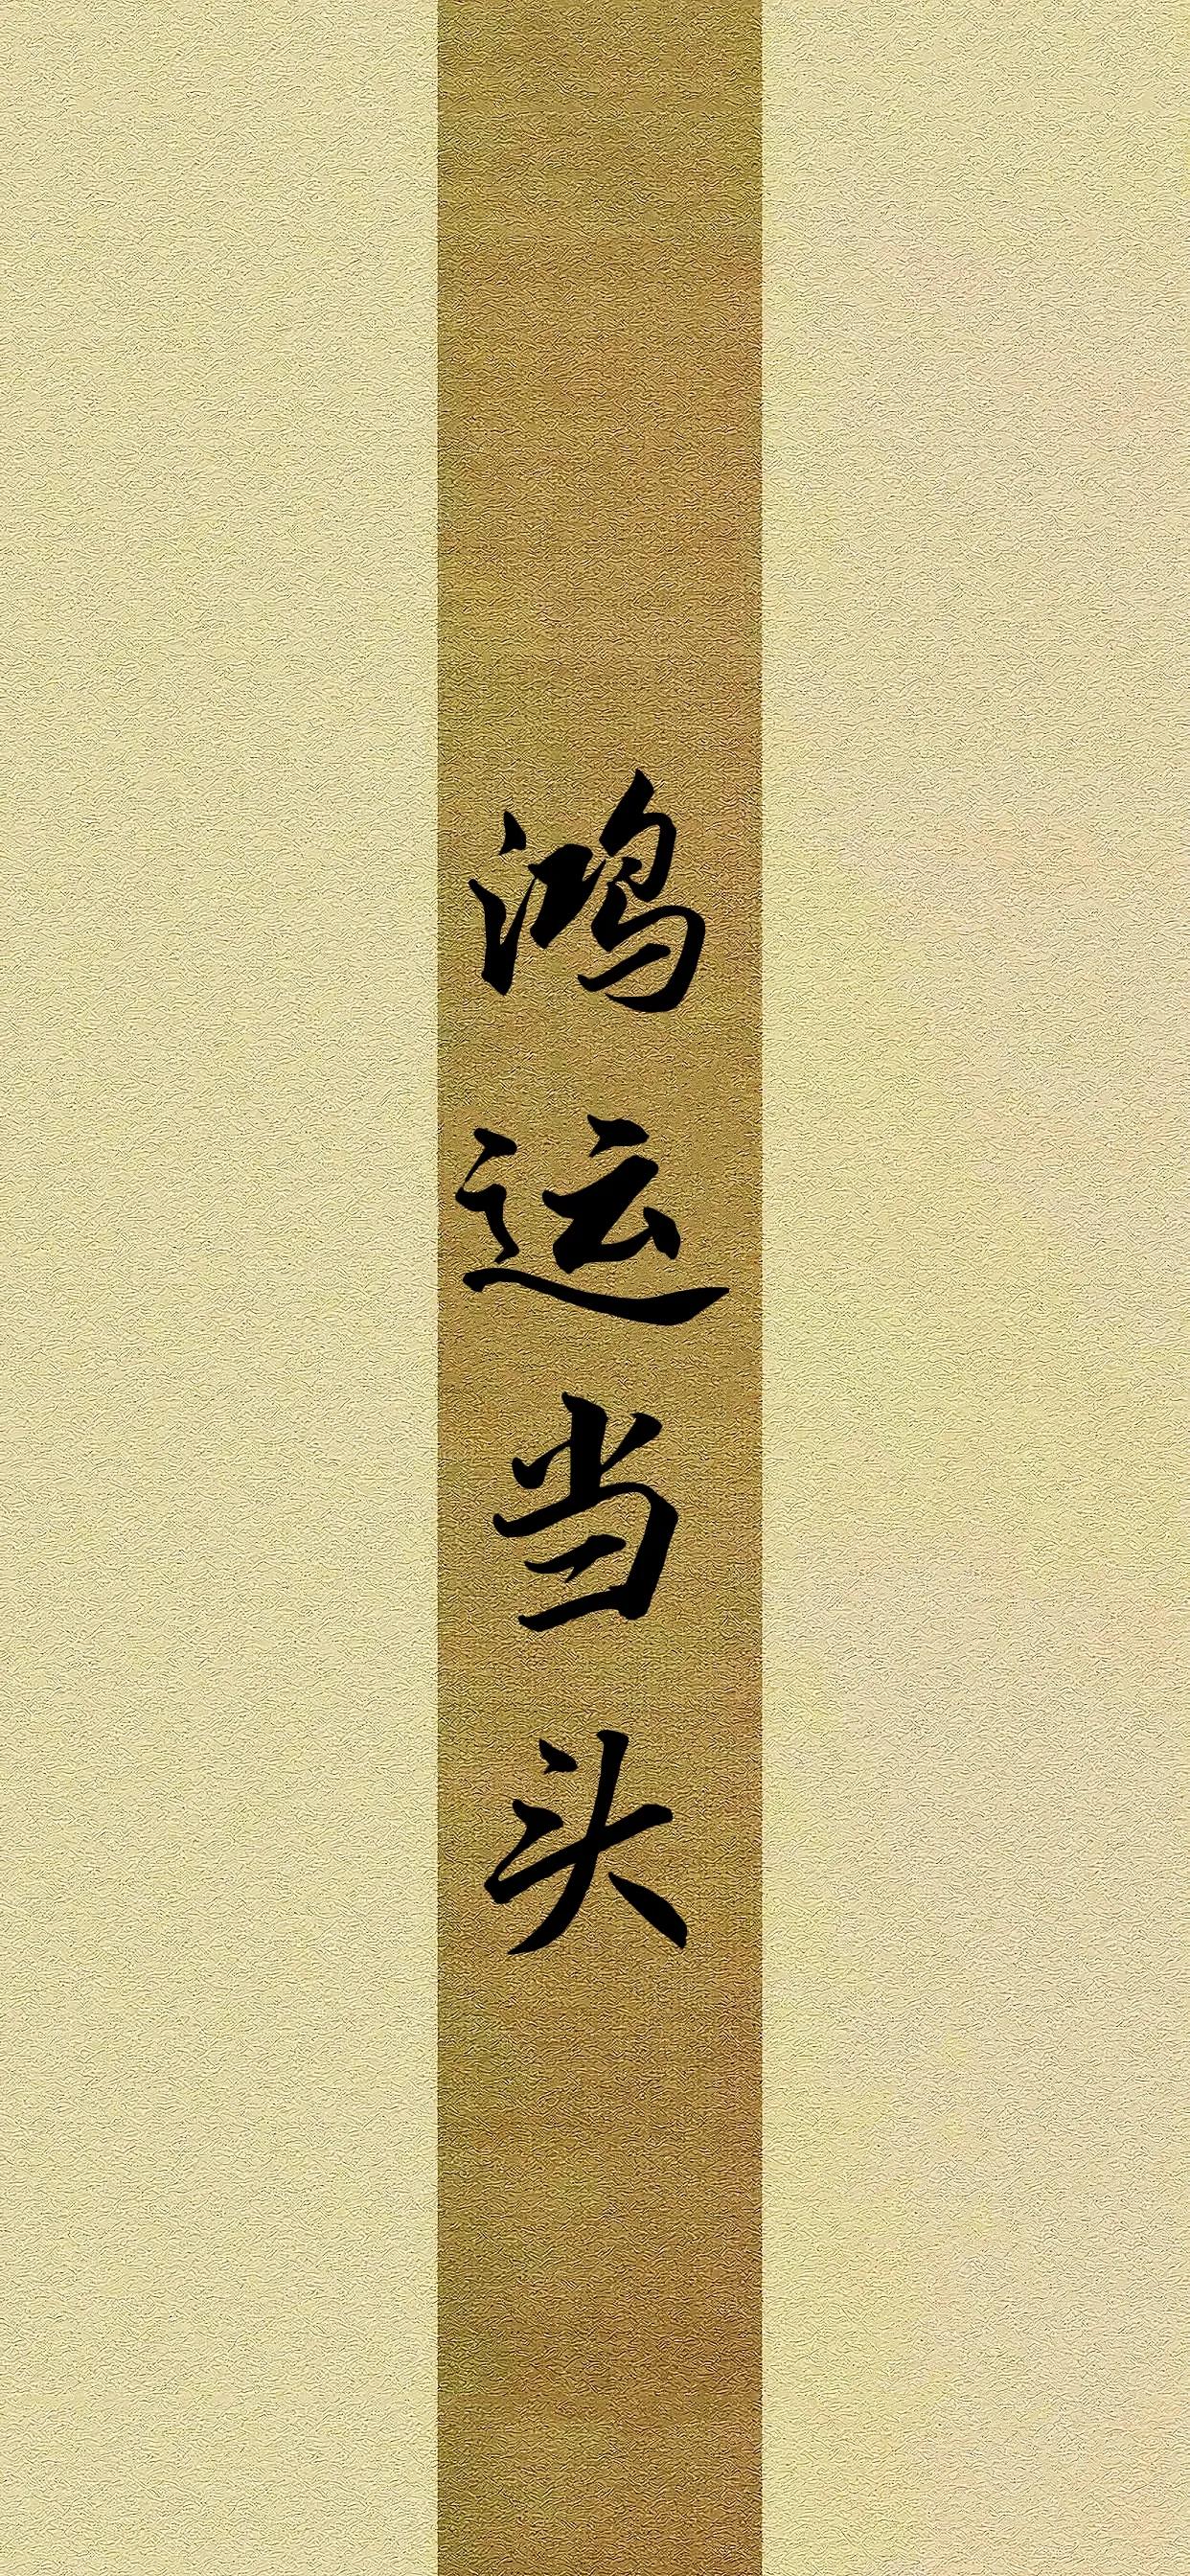 鸿运当头